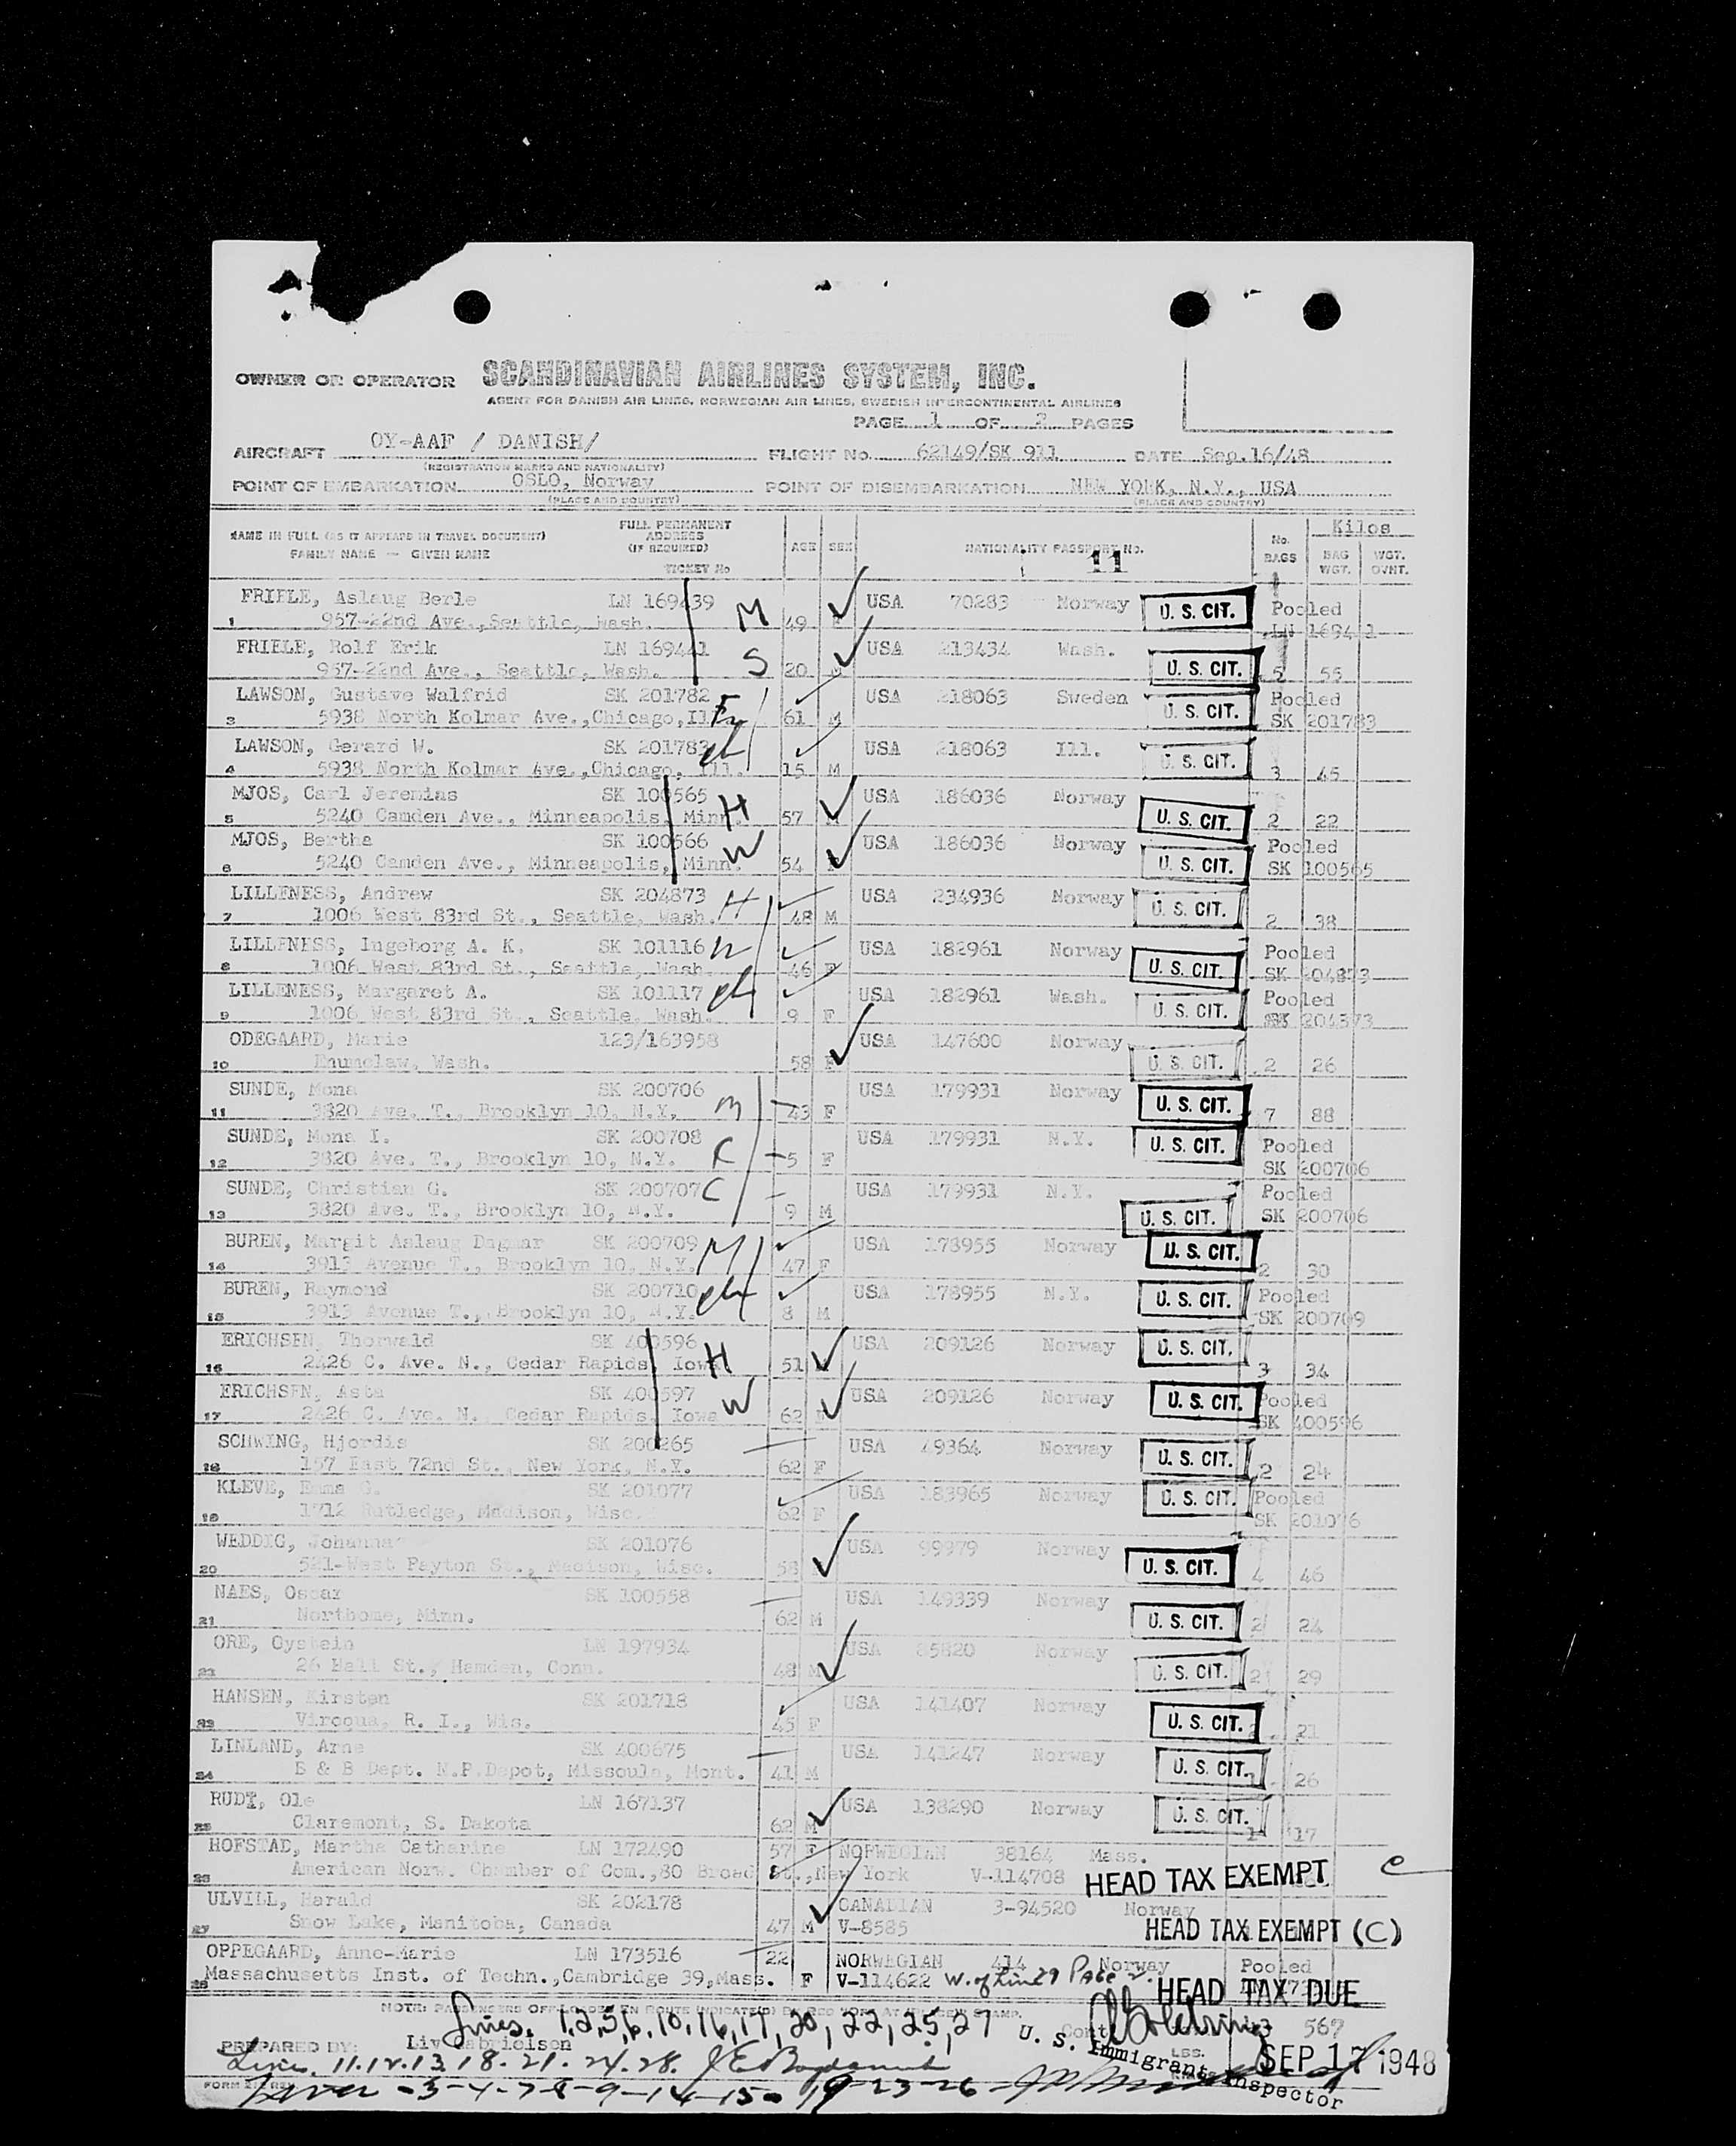 OWNER OR OPERATOR SCANDINAVIAN AIRLINES SYSTEM, INC.
AGENT FOR DANISH AIR LINES, NORWEGIAN AIR LINES, SWEDISH INTERCONTINENTAL AIRLINES
PAGE 1 OF 2 PAGES
AIRCRAFT OY-AAF / DANISH/ FLIGHT No. 62149/SK 911 DATE Sep.16/48
(REGISTRATION MARKS AND NATIONALITY)
POINT OF EMBARKATION OSLO, Norway POINT OF DISEMBARKATION NEW YORK, N.Y., USA
(PLACE AND COUNTRY) (PLACE AND COUNTRY)
NAME IN FULL (AS IT APPEARS IN TRAVEL DOCUMENT) FAMILY NAME — GIVEN NAME FULL PERMANENT ADDRESS (IF REQUIRED) TICKET No AGE SEX NATIONALITY PASSPORT NO. No. BAGS Kilos BAG WGT. WGT. OVHT.
11
FRIELE, Aslaug Berle LN 169439 USA 70283 Norway U. S. CIT. Pooled
1 957-22nd Ave.,Seattle, Wash. M 49 LN 169441
FRIELE, Rolf Erik LN 169441 USA 213434 Wash. U. S. CIT.
957-22nd Ave., Seattle, Wash. S 20 M 5 55
LAWSON, Gustave Walfrid SK 201782 USA 218063 Sweden U. S. CIT. Pooled
3 5938 North Kolmar Ave.,Chicago,Ill. 61 M SK 201783
LAWSON, Gerard W. SK 201783 USA 218063 Ill. U. S. CIT.
4 5938 North Kolmar Ave.,Chicago, Ill. 15 M 3 45
MJOS, Carl Jeremias SK 100565 USA 186036 Norway U. S. CIT.
5 5240 Camden Ave., Minneapolis, Minn. H 57 2 22
MJOS, Bertha SK 100566 USA 186036 Norway U. S. CIT. Pooled
6 5240 Camden Ave., Minneapolis, Minn. W 54 SK 100565
LILLENESS, Andrew SK 204873 USA 234936 Norway U. S. CIT.
7 1006 West 83rd St., Seattle, Wash. H 48 M 2 38
LILLENESS, Ingeborg A. K. SK 101116 W USA 182961 Norway U. S. CIT. Pooled
8 1006 West 83rd St., Seattle, Wash. 46 F SK 204873
LILLENESS, Margaret A. SK 101117 ch USA 182961 Wash. U. S. CIT. Pooled
9 1006 West 83rd St., Seattle, Wash. 9 F SK 204873
ODEGAARD, Marie 123/163958 USA 147600 Norway U. S. CIT.
10 Enumclaw, Wash. 58 F 2 26
SUNDE, Mona SK 200706 USA 179931 Norway U. S. CIT.
11 3820 Ave. T., Brooklyn 10, N.Y. M 43 F 7 88
SUNDE, Mona I. SK 200708 USA 179931 N.Y. U. S. CIT. Pooled
12 3820 Ave. T., Brooklyn 10, N.Y. C 5 F SK 200706
SUNDE, Christian G. SK 200707 C USA 179931 N.Y. U. S. CIT. Pooled
13 3820 Ave. T., Brooklyn 10, N.Y. 9 M SK 200706
BUREN, Margit Aslaug Dagmar SK 200709 M USA 178955 Norway U. S. CIT.
14 3913 Avenue T., Brooklyn 10, N.Y. 47 F 2 30
BUREN, Raymond SK 200710 ch USA 178955 N.Y. U. S. CIT. Pooled
15 3913 Avenue T., Brooklyn 10, N.Y. 8 M SK 200709
ERICHSEN, Thorwald SK 400596 USA 209126 Norway U. S. CIT.
16 2426 C. Ave. N., Cedar Rapids, Iowa H 51 3 34
ERICHSEN, Asta SK 400597 W USA 209126 Norway U. S. CIT. Pooled
17 2426 C. Ave. N. Cedar Rapids, Iowa 62 F SK 400596
SCHWING, Hjordis SK 200265 USA 49364 Norway U. S. CIT.
18 157 East 72nd St., New York, N.Y. 62 F 2 24
KLEVE, Emma G. SK 201077 USA 183965 Norway U. S. CIT. Pooled
19 1712 Rutledge, Madison, Wisc. 62 F SK 201076
WEDDIG, Johanna SK 201076 USA 99979 Norway U. S. CIT.
20 521-West Payton St., Madison, Wisc. 58 4 46
NAES, Oscar SK 100558 USA 149339 Norway U. S. CIT.
21 Northome, Minn. 62 M 2 24
ORE, Oystein LN 197934 USA 85820 Norway U. S. CIT.
26 Hall St., Hamden, Conn. 48 M 2 29
HANSEN, Kirsten SK 201718 USA 141407 Norway U. S. CIT.
23 Viroqua, R. I., Wis. 45 F 21
LINLAND, Arne SK 400675 USA 141247 Norway U. S. CIT.
24 B & B Dept. N.P.Depot, Missoula, Mont. 41 M 26
RUDI, Ole LN 167137 USA 138290 Norway U. S. CIT.
25 Claremont, S. Dakota 62 M 1 17
HOFSTAD, Martha Catharine LN 172490 57 F NORWEGIAN 38164 Mass.
26 American Norw. Chamber of Com.,80 Broad St.,New York V-114708 HEAD TAX EXEMPT C
ULVILL, Harald SK 202178 CANADIAN 3-94520 Norway
27 Snow Lake, Manitoba, Canada 47 M V-8585 HEAD TAX EXEMPT (C)
OPPEGAARD, Anne-Marie LN 173516 22 NORWEGIAN 414 Norway Pooled
28 Massachusetts Inst. of Techn.,Cambridge 39,Mass. F V-114622 W. of Line 29 Page 2. HEAD TAX DUE
NOTE: PASSENGERS OFF-LOADED EN ROUTE INDICATED BY RED
Lines. 1,2,5,6,10,16,17,20,22,25,27 567
PREPARED BY: Liv Gabrielsen U. S. Immigrant Inspector
Lines. 11.12.13.18.21.24.28. SEP 17 1948
FORM
-3-4-7-8-9-14-15-19-23-26-